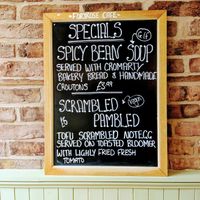 FORTROSE CAFE
SPECIALS
SPICY BEAN SOUP
SERVED WITH CROMARTY
BAKERY BREAD & HANDMADE
CROUTONS £3.99
SCRAMBLED
IS
PAMBLED
TOFU SCRAMBLED NOTEGG
SERVED ON TOASTED BLOOMER
WITH LIGHLY FRIED FRESH
TOMATO